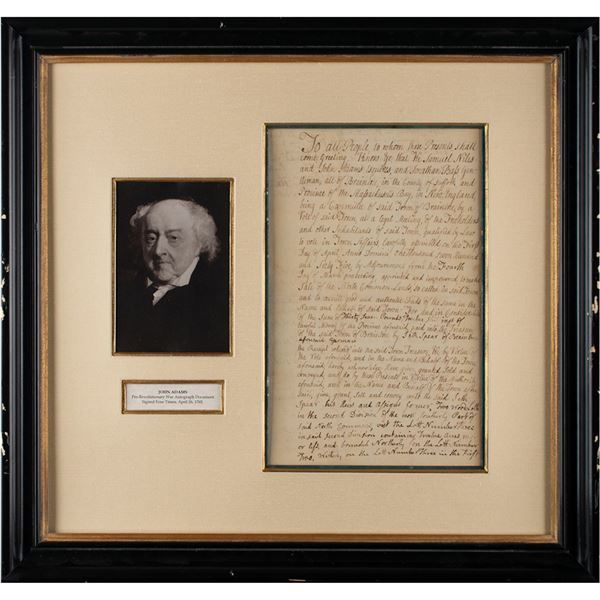 To all People to whom these Presents shall
come Greeting. Know Ye that We Samuel Niles
and John Adams Esquires, and Jonathan Bass Gen-
tleman, all of Braintree, in the County of Suffolk and
Province of the Massachusetts Bay, in New England,
being a Committee of said Town of Braintree, by a
Vote of said Town, at a legal Meeting, of the Freeholders
and other Inhabitants of said Town, qualified by Law
to vote in Town Affairs lawfully assembled on the First
Day of April Anno Domini One thousand seven Hundred
and Sixty Five, by Adjournment from the Fourth
Day of March preceeding appointed and impowered to make
Sale of the North Common Lands, so called, in said Town
and to execute good and authentic Deeds of the same in the
Name and Behalf of said Town. For and in Consideration
of the Sum of Thirty four Pounds
lawful Money of the Province aforesaid, paid into the Treasury
of the said Town of Braintree by Seth Spear of Braintree
aforesaid
the Receipt whereof into the said Town Treasury We by Virtue of
the Vote aforesaid, and in the Name and Behalf of the Town
aforesaid, hereby acknowledge, Have given, granted, sold and
conveyed, and do by these Presents in Virtue of the Authority
aforesaid, and in the Name and Behalf of the Town afore-
said, give, grant, sell and convey unto the said Seth
Spear his Heirs and Assigns forever, Two Wood Lotts
in the second Division of the most Southerly Part of
said North Commons, viz the Lott Number Three
in said second Division containing Twelve Acres more
or less, and bounded Northerly on the Lott Number
Two, Westerly, on the Lott Number Three in the First
JOHN ADAMS
Pre-Revolutionary War Autograph Document
Signed Four Times, April 26, 1765